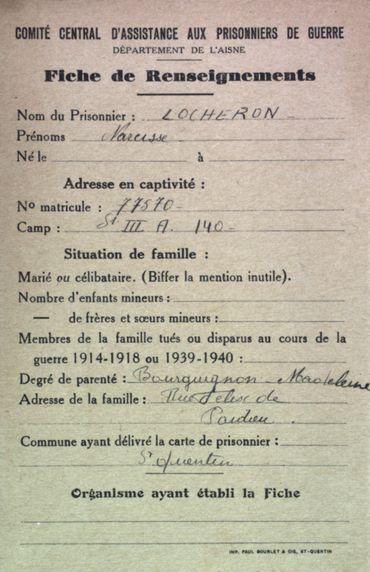 COMITÉ CENTRAL D'ASSISTANCE AUX PRISONNIERS DE GUERRE
DÉPARTEMENT DE L'AISNE
Fiche de Renseignements
Nom du Prisonnier : LOCHERON
Prénoms Narcisse
Né le à
Adresse en captivité :
No matricule : 77570
Camp : St III A. 140
Situation de famille :
Marié ou célibataire. (Biffer la mention inutile).
Nombre d'enfants mineurs :
— de frères et sœurs mineurs :
Membres de la famille tués ou disparus au cours de la
guerre 1914-1918 ou 1939-1940 :
Degré de parenté : Bourguignon - Madeleine
Adresse de la famille : Rue Felix de
Pardieu.
Commune ayant délivré la carte de prisonnier :
St quentin
Organisme ayant établi la Fiche
IMP. PAUL BOURLET & CIE, ST-QUENTIN